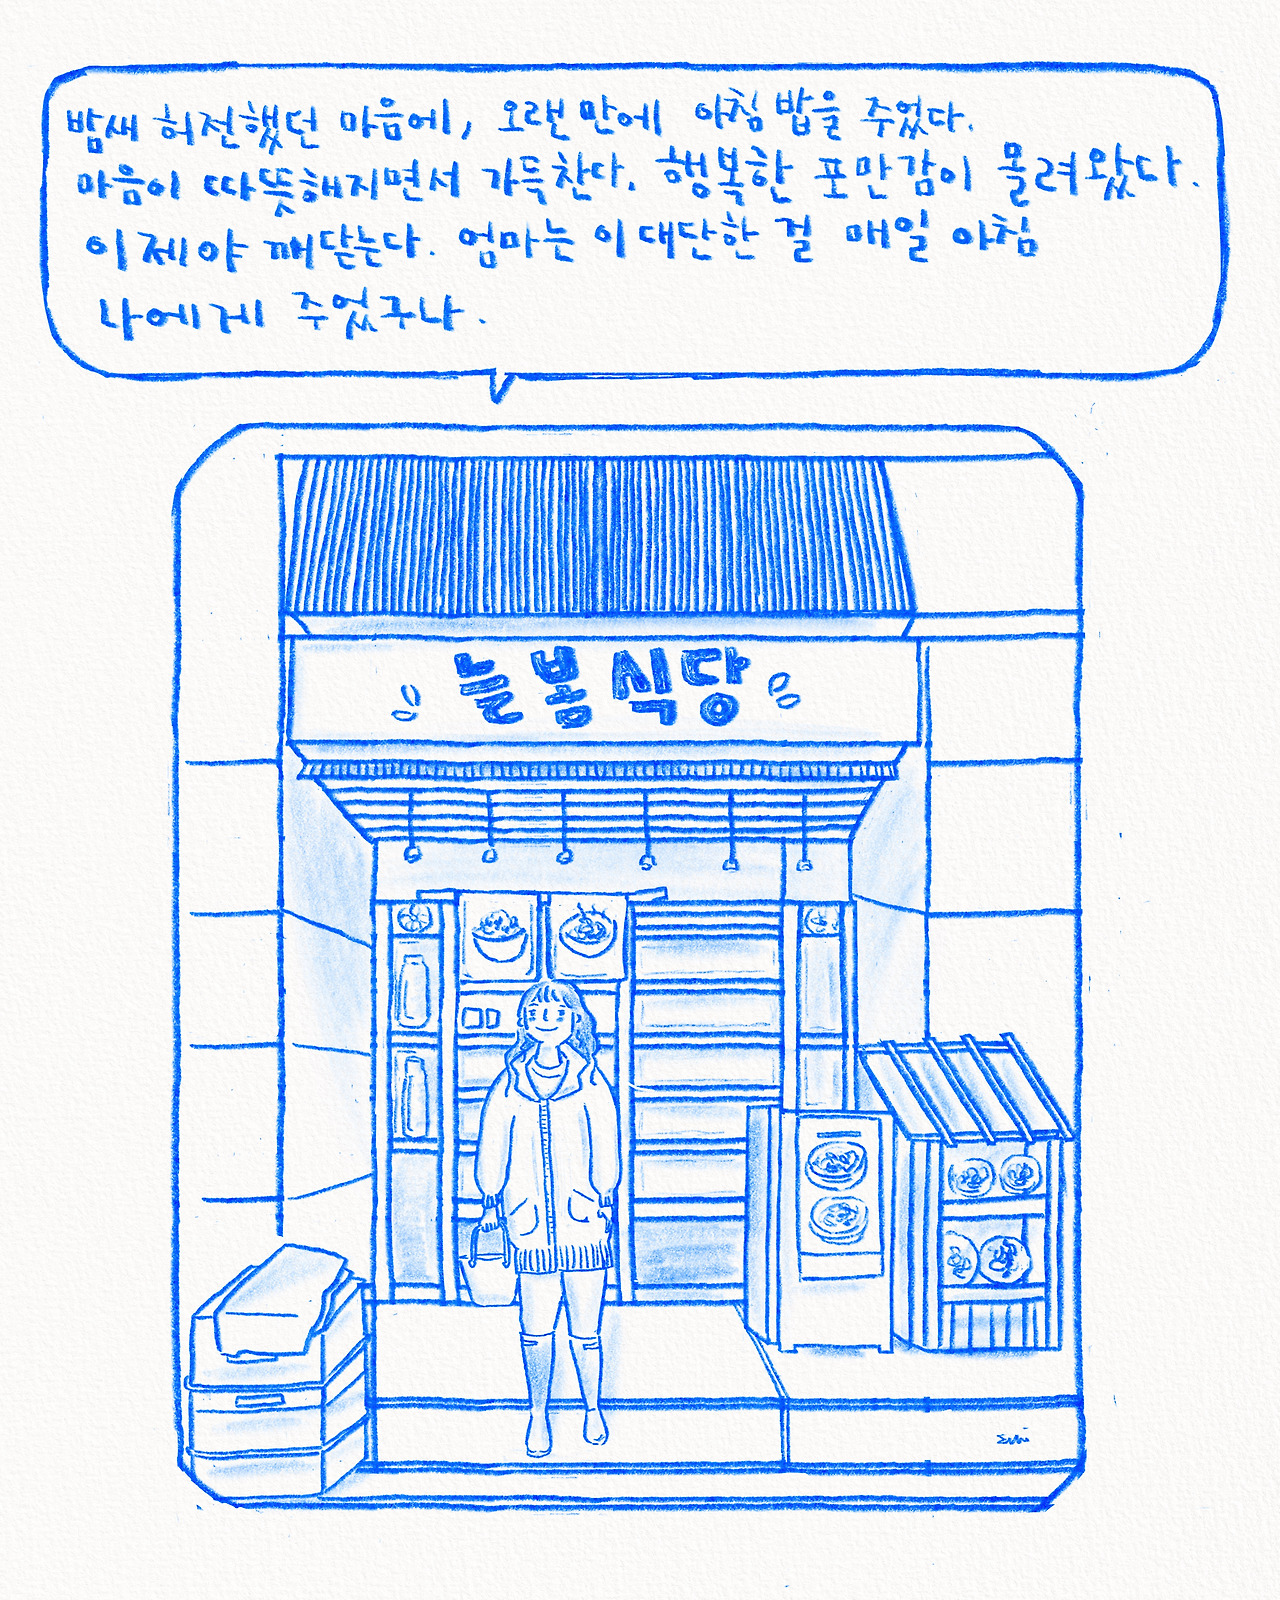 밤새 허전했던 마음에, 오랜만에 아침밥을 주었다.
마음이 따뜻해지면서 가득찬다. 행복한 포만감이 몰려왔다.
이제야 깨닫는다. 엄마는 이 대단한 걸 매일 아침
나에게 주었구나.
늘봄식당